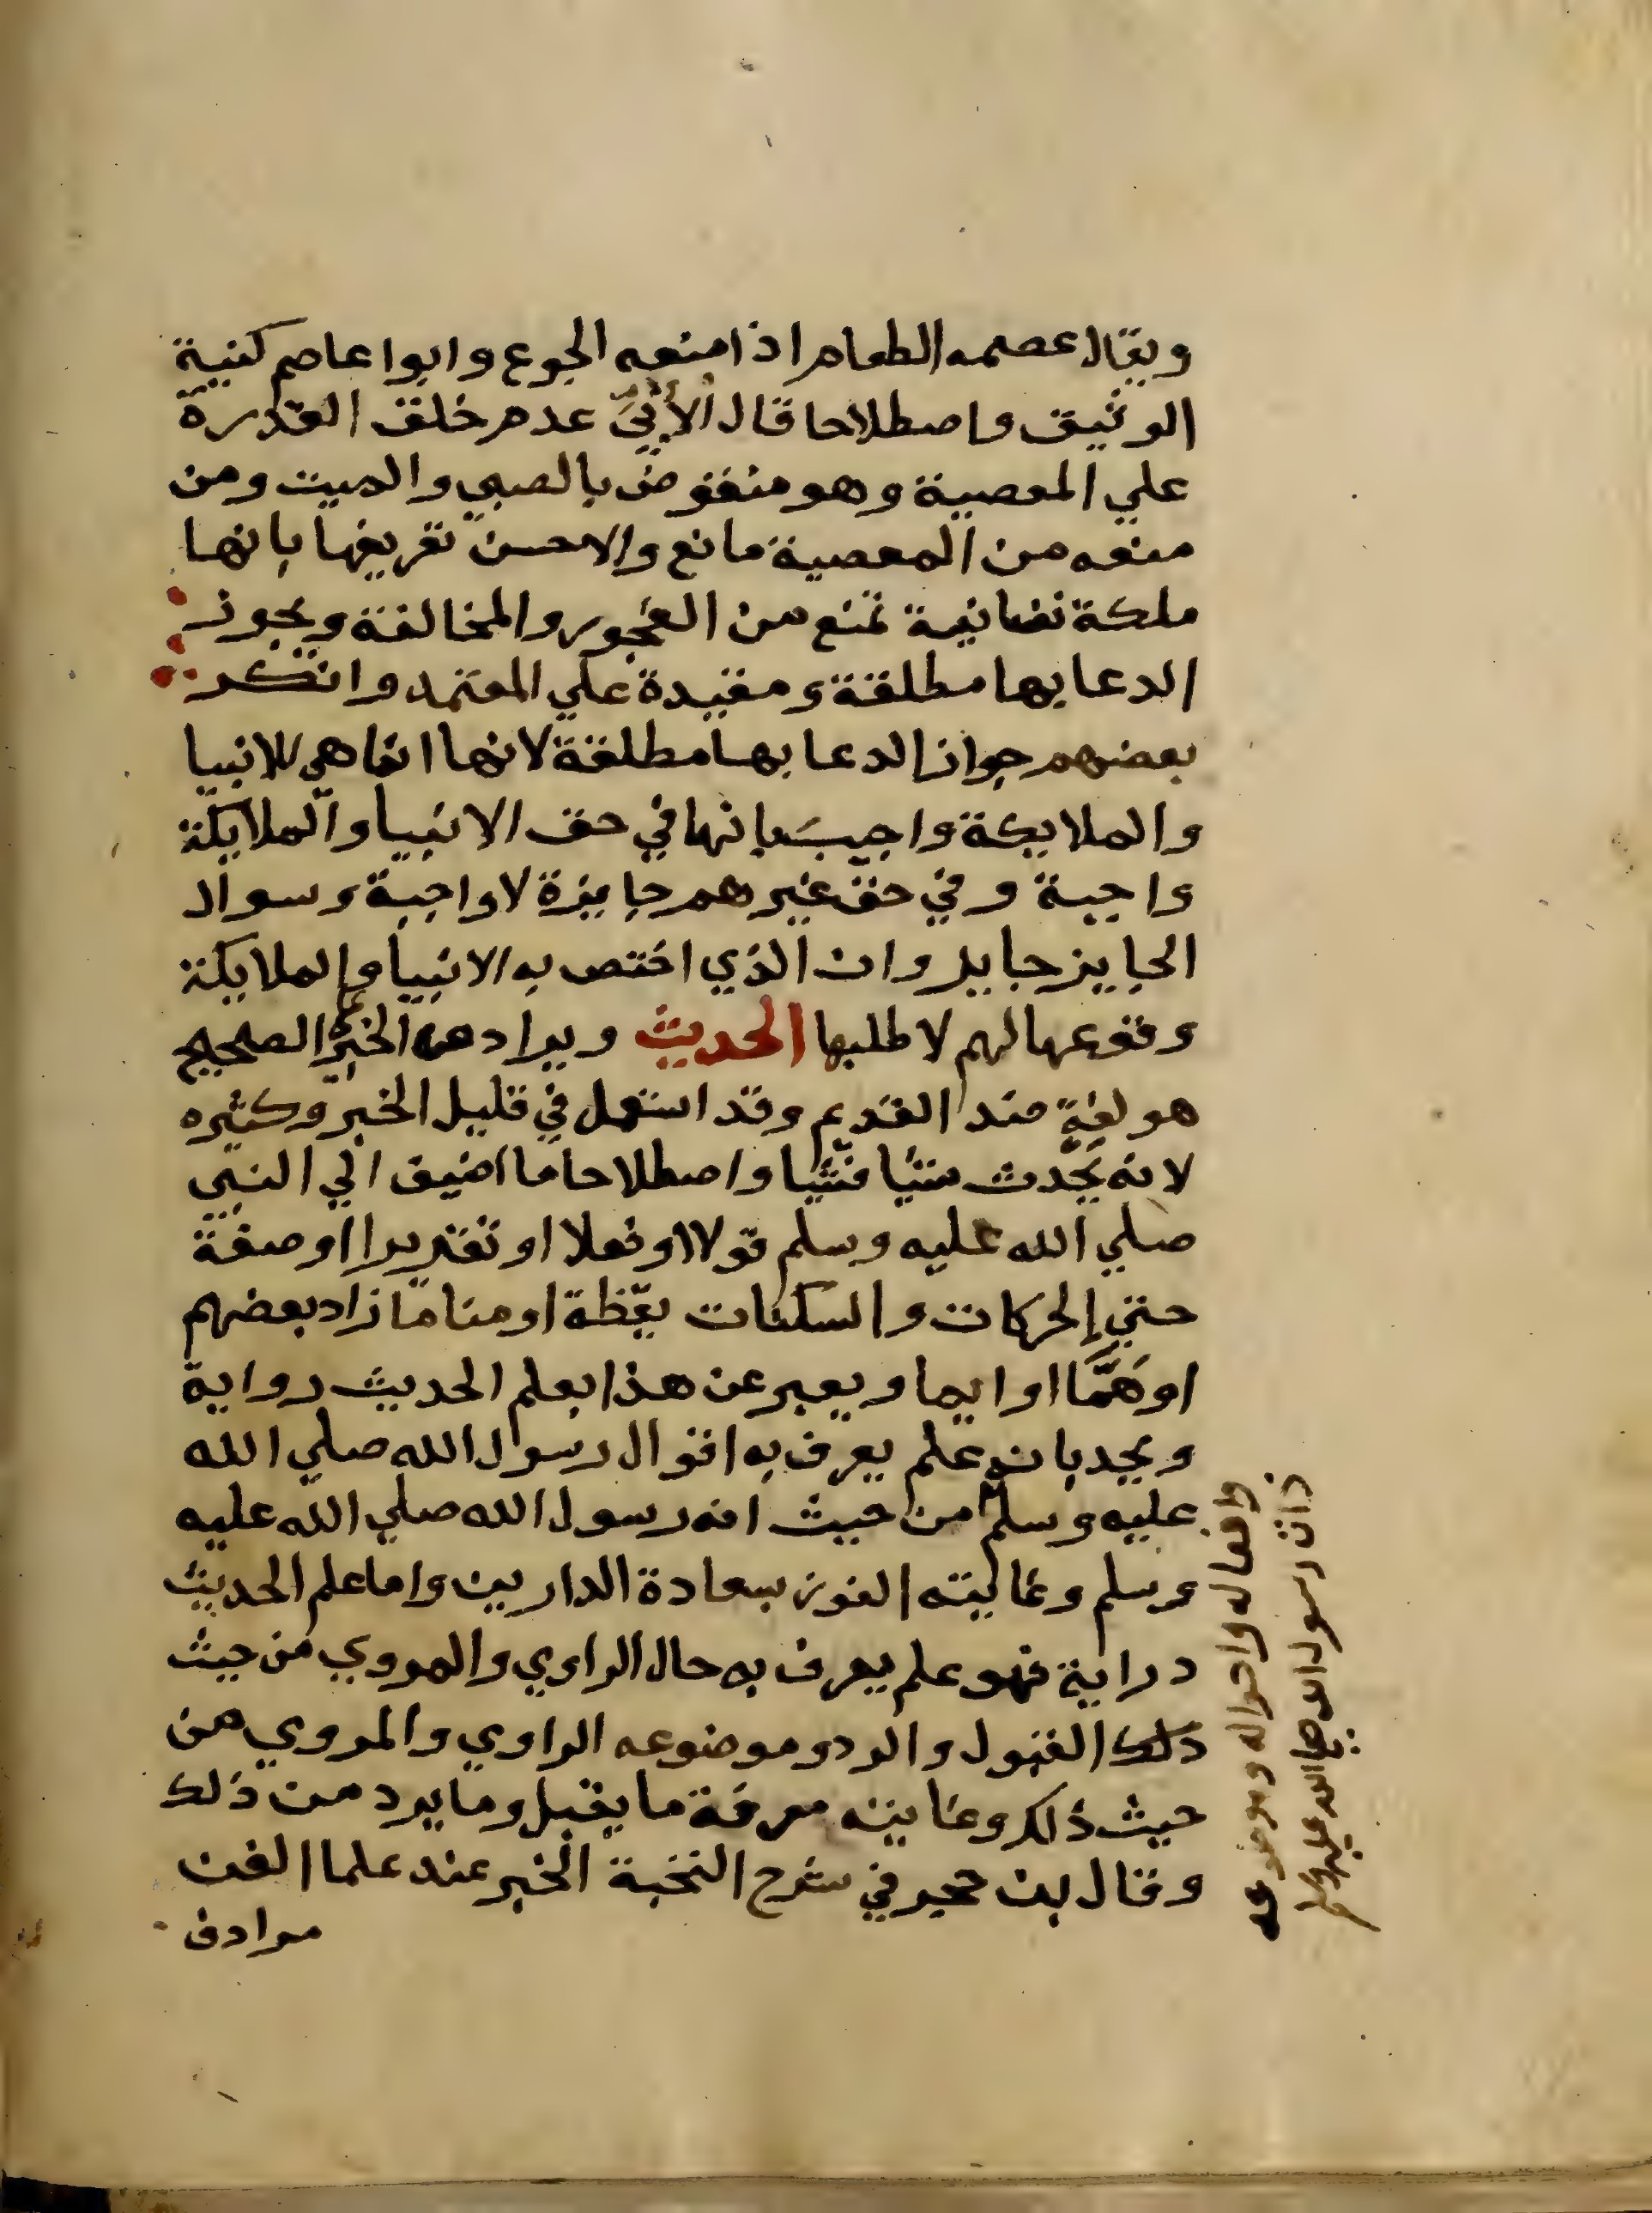 ويقال عصمه الطعام اذا منعه الجوع وابوا عاصم كنية
الوثيق واصطلاحا قال الأبيّ عدم خلق القدرة
علي المعصية وهو منقوض بالصبي والميت ومن
منعه من المعصية مانع والاحسن تعريفها بانها
ملكة نفسانية تمنع من الفجور والمخالفة ويجوز
الدعا بها مطلقة ومقيدة علي المعتمد وانكر
بعضهم جواز الدعا بها مطلقة لانها انما هي للانبيا
والملايكة واجيب بانها في حق الانبيا والملايكة
واجبة وفي حق غيرهم جايزة لا واجبة وسوال
الجايز جايز وان الذي اختص به الانبيا والملايكة
وقوعها لهم لا طلبها الحديث ويرادفه الخبر الصحيح
هو لغة ضد القديم وقد استعمل في قليل الخبر وكثيره
لانه يحدث شئيا فشئيا واصطلاحا ما اضيف الي النبي
صلي الله عليه وسلم قولا او فعلا او تقريرا او صفة
حتي الحركات والسكنات يقظة او مناما زاد بعضهم
او همّا او ايما ويعبر عن هذا بعلم الحديث رواية
ويحد بانه علم يعرف به اقوال رسول الله صلي الله
عليه وسلم من حيث انه رسول الله صلي الله عليه
وسلم وغايته الفوز بسعادة الدارين واما علم الحديث
دراية فهو علم يعرف به حال الراوي والمروي من حيث
ذلك القبول والرد وموضوعه الراوي والمروي من
حيث ذلك وغايته معرفة ما يقبل وما يرد من ذلك
وقال بن حجر في شرح النخبة الخبر عند علما الفن
مرادف
وافعاله واحواله وموضوعه
ذات رسول الله صلي الله عليه وسلم